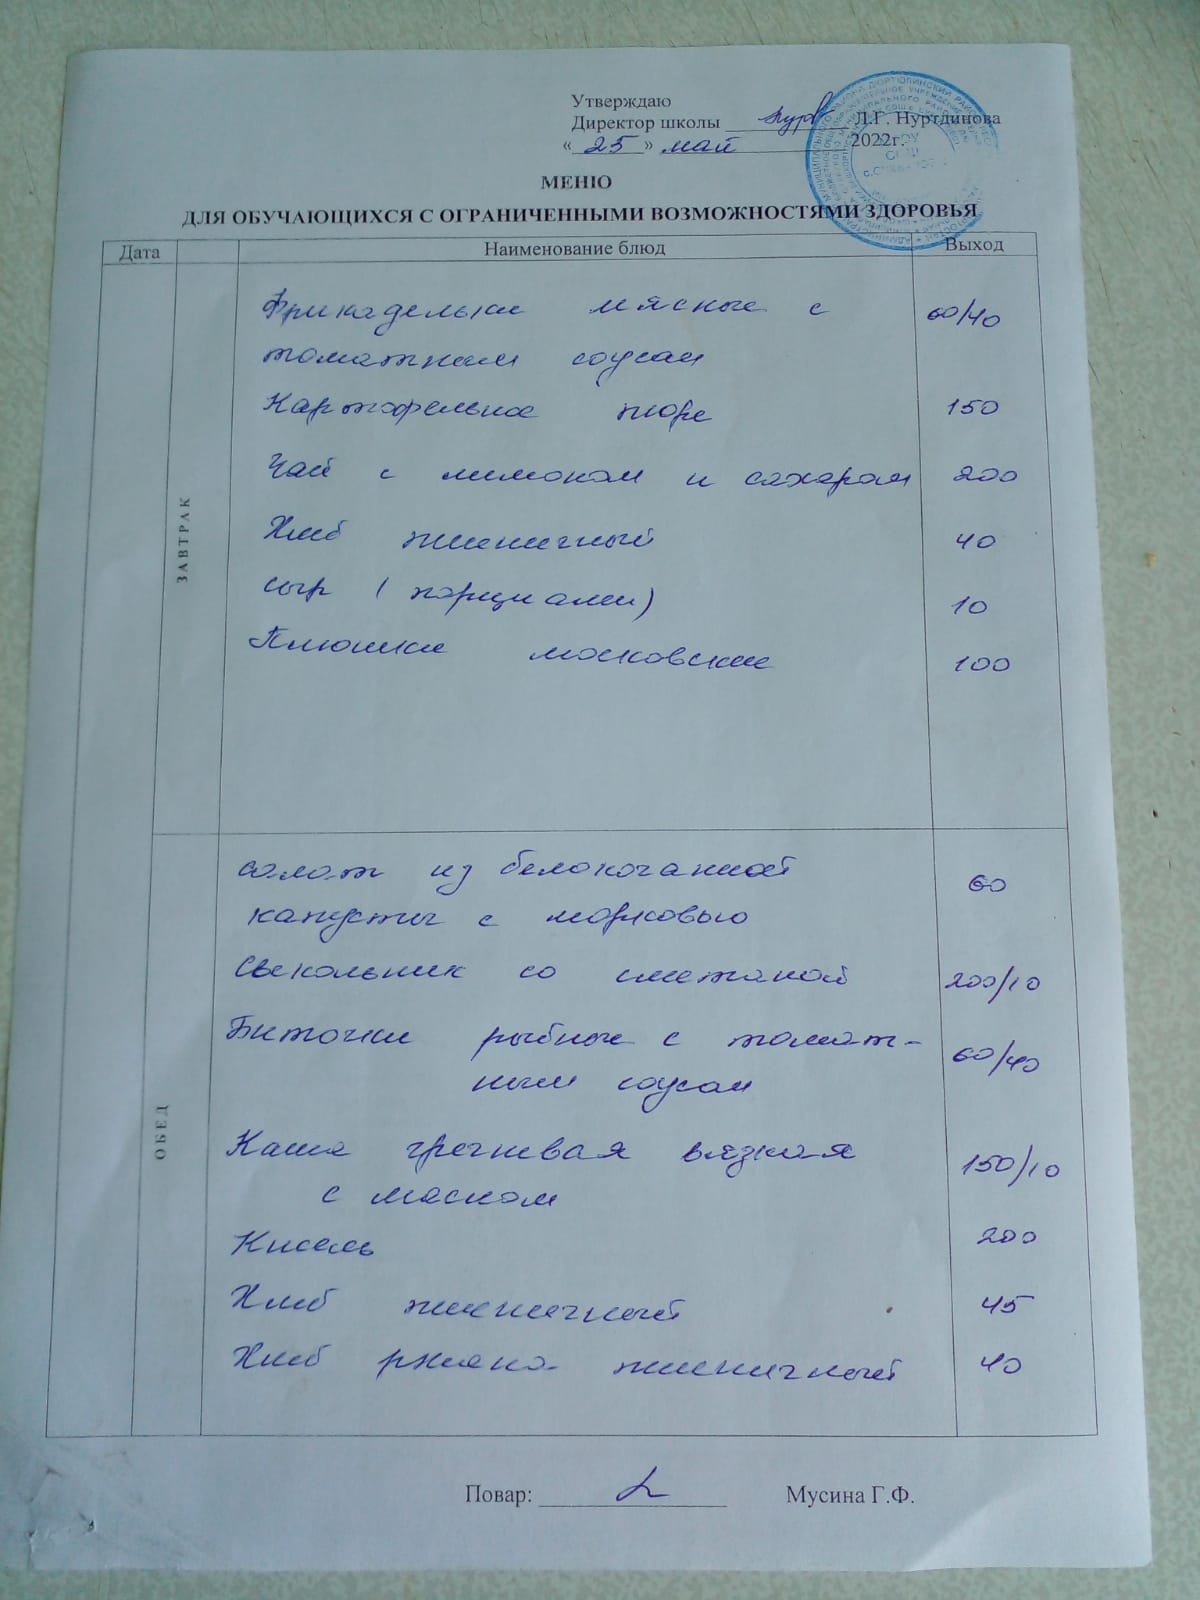 Утверждаю
Директор школы Л.Г. Нуртдинова
« 25 » май 2022г.
МЕНЮ
ДЛЯ ОБУЧАЮЩИХСЯ С ОГРАНИЧЕННЫМИ ВОЗМОЖНОСТЯМИ ЗДОРОВЬЯ
Дата Наименование блюд Выход
ЗАВТРАК
Фрикадельки мясные с 60/40
томатным соусом
Картофельное пюре 150
Чай с лимоном и сахаром 200
Хлеб пшеничный 40
сыр (порциями) 10
Плюшки московские 100
ОБЕД
салат из белокочанной 60
капусты с морковью
Свекольник со сметаной 200/10
Биточки рыбные с томат- 60/40
ным соусом
Каша гречневая вязкая 150/10
с маслом
Кисель 200
Хлеб пшеничный 45
Хлеб ржано-пшеничный 40
Повар: Мусина Г.Ф.